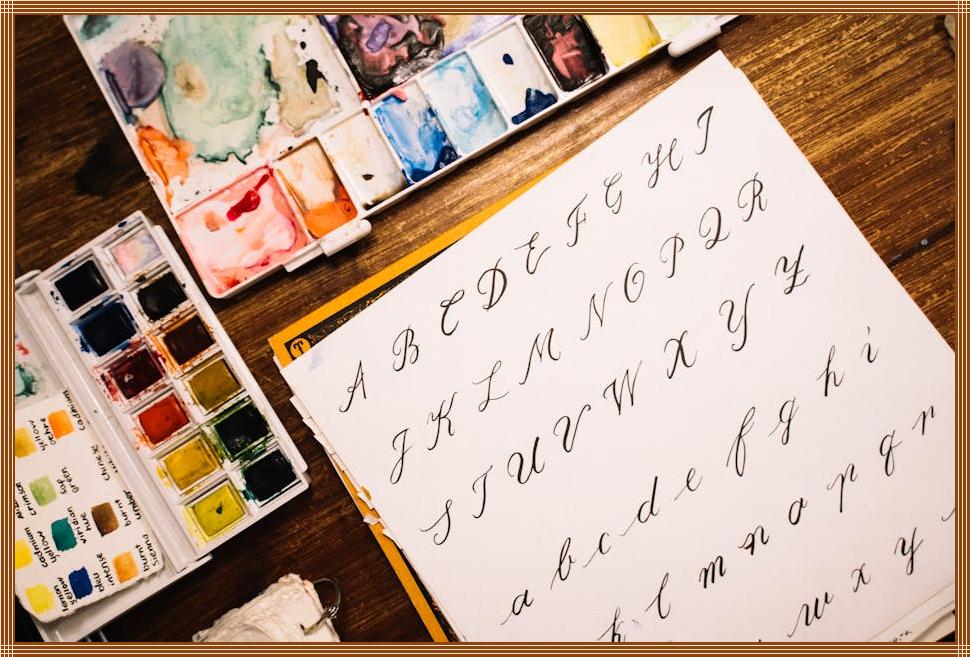 A B C D E F G H I
J K L M N O P Q R
S T U V W X Y Z
a b c d e f g h i
k l m n o p q r
w x y
T
cadmium
yellow ochre
Chinese
sap green
crimson
burnt umber
viridian hue
cadmium yellow
burnt sienna
intense blue
lemon yellow